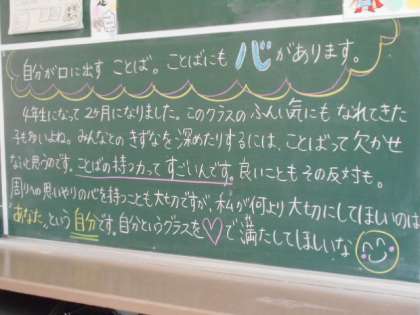 自分が口に出す ことば。ことばにも 心 があります。
4年生になって 2ヶ月になりました。このクラスの ふんい気にも なれてきた
子も多いよね。みんなとの きずなを 深めたりするには、ことばって 欠かせ
ないと思うのです。ことばの持つ力って すごいんです。良いことも その反対も。
周りへの思いやりの心を持つことも大切ですが、私が何より大切にしてほしいのは
"あなた"という 自分です。自分というグラスを♡で満たしてほしいな